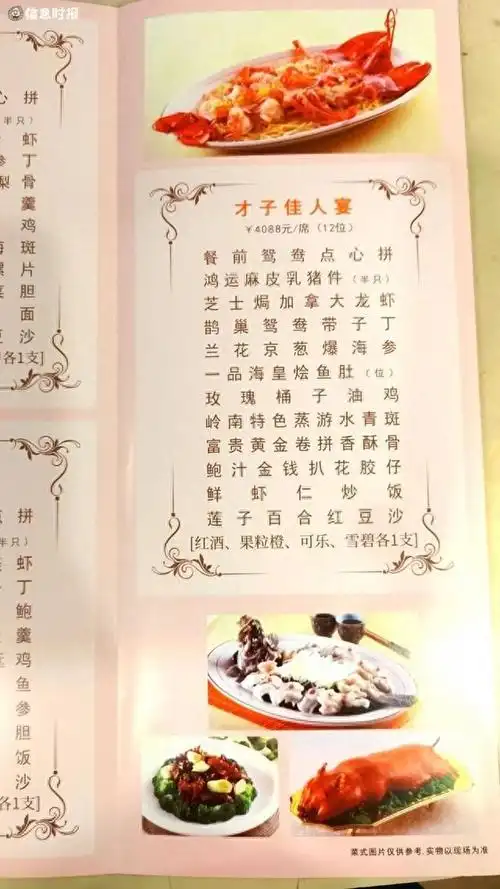 信息时报
心拼
(半只)
虾
参丁
梨骨
羹
鸡
海斑
螺片
菜胆
面
豆沙
各1支]
才子佳人宴
¥4088元/席（12位）
餐前鸳鸯点心拼
鸿运麻皮乳猪件（半只）
芝士焗加拿大龙虾
鹊巢鸳鸯带子丁
兰花京葱爆海参
一品海皇烩鱼肚（位）
玫瑰桶子油鸡
岭南特色蒸游水青斑
富贵黄金卷拼香酥骨
鲍汁金钱扒花胶仔
鲜虾仁炒饭
莲子百合红豆沙
[红酒、果粒橙、可乐、雪碧各1支]
拼
半只)
虾
丁
鲍
羹
鸡
鱼
参
胆
饭
沙
各1支]
菜式图片仅供参考,实物以现场为准